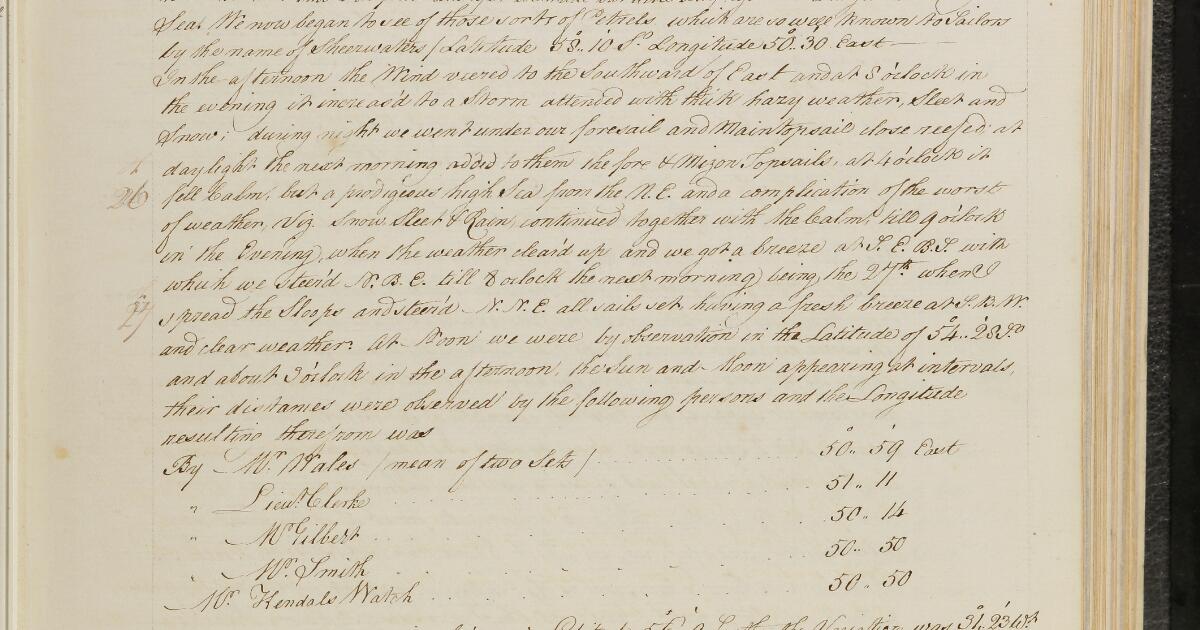 Sea. We now began to see of those sorts of Petrels which are so well known to Sailors
by the name of Sheerwaters / Latitude 58°.. 10' So. Longitude 50°. 30' East
In the afternoon the Wind veered to the Southward of East and at 8 o'clock in
the evening it increas'd to a Storm attended with thick hazy weather, Sleet and
Snow; during night we went under our foresail and Maintopsail close reefed: at
26 daylight the next morning added to them the fore & Mizon Topsails, at 4 o'clock it
fell Calm, but a prodigeous high Sea from the N.E. and a complication of the worst
of weather, Viz. Snow Sleet & Rain, continued together with the Calm till 9 o'clock
in the Evening, when the weather clear'd up and we got a breeze at S. E. B. S. with
which we steer'd N. B. E. till 8 o'clock the next morning being the 27th when I
27 spread the Sloops and steer'd N. N. E. all sails set having a fresh breeze at S. B. W.
and clear weather. At Noon we were by observation in the Latitude of 54°.. 28' So
and about 3 o'clock in the afternoon, the Sun and Moon appearing at intervals,
their distances were observed by the following persons and the Longitude
resulting therefrom was
By Mr. Wales / mean of two Sets / 50°.. 59' East
" Lieut. Clerke 51.. 11
" Mr. Gilbert 50.. 14
" Mr. Smith 50.. 50
Mr. Kendals Watch 50.. 50
the Variation was 31°.. 23' Wt